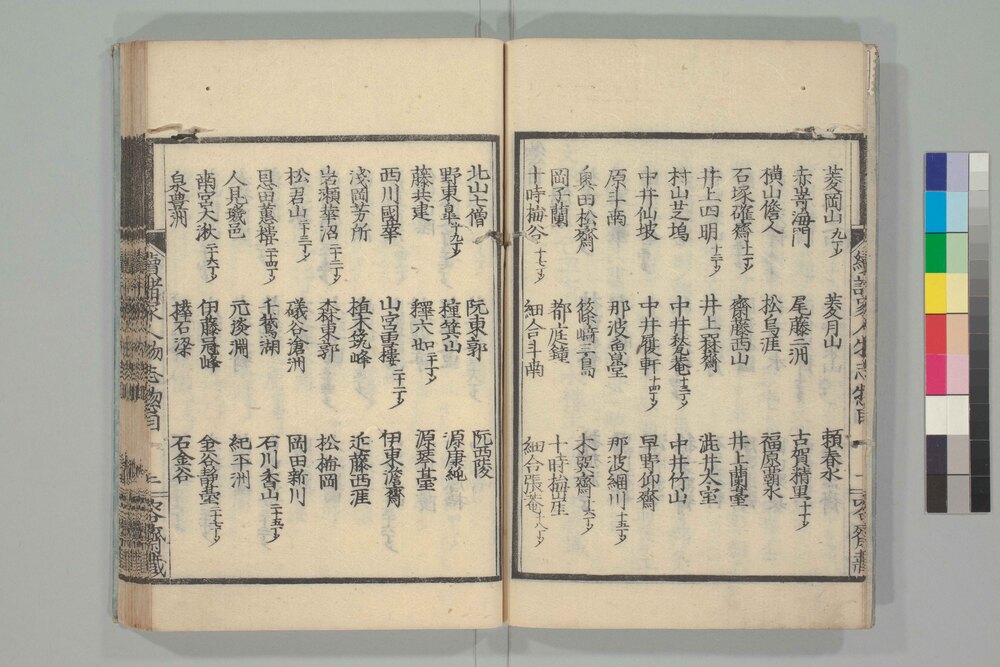 菱岡山九丁 菱月山 頼春水
赤嵜海門 尾藤二洲 古賀精里十丁
横山儋人 松烏涯 福原霸水
石塚確齋十一丁 齋藤西山 井上蘭臺
井上四明十二丁 井上齋 澁井太室
村山芝塢 中井甃菴十三丁 中井竹山
中井仙坡 中井履軒十四丁 早野仰齋
原斗南 那波魯堂 那波細川十五丁
奥田松齋 篠﨑三島 木巽齋十六丁
岡子蘭 都庭鐘 十時梅厓
十時梅谷十七丁 細合斗南 細合張菴十八丁
北山七僧 阮東郭 阮西陵
野東皐十九丁 橦箕山 源康純
藤共建 釋六如二十丁 源琴臺
西川國華 山宮雪樓二十一丁 伊東澹齋
淺岡芳所 植木筑峰 近藤西涯
岩瀬華沼二十二丁 森東郭 松梅岡
松君山二十三丁 礒谷滄洲 岡田新川
恩田蕙樓二十四丁 千鵞湖 石川香山二十五丁
人見璣邑 元淡淵 紀平洲
南宮大湫二十六丁 伊藤冠峰 金谷靜臺二十七丁
泉豊洲 樺石梁 石金谷
續諸家人物志惣目 二